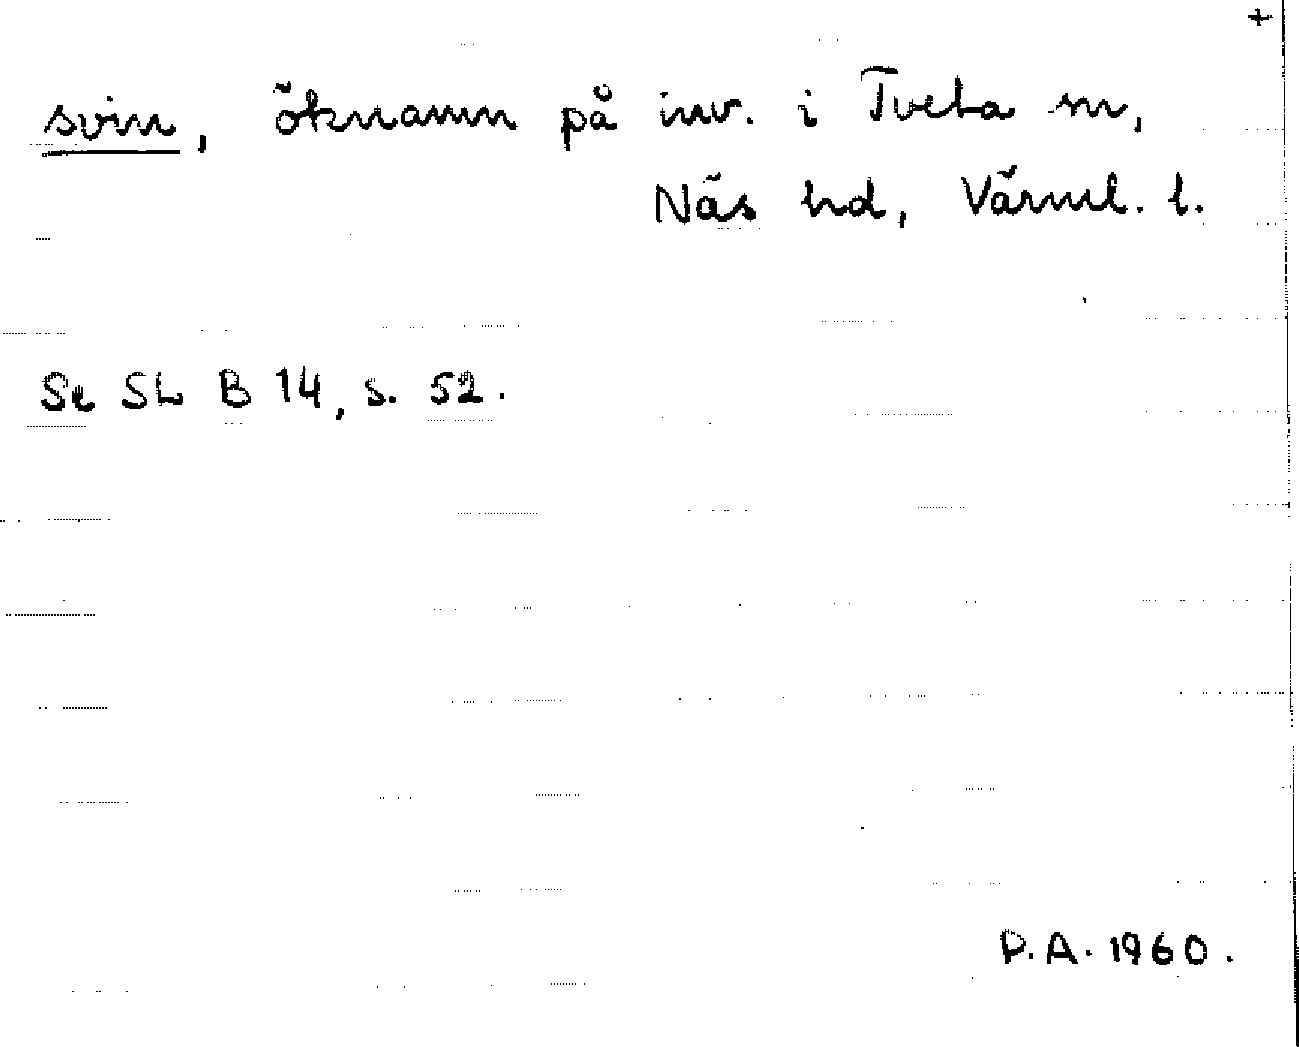 +
svin, öknamn på inv. i Tveta sn,
Näs hd, Värml. l.
Se SL B 14, s. 52.
P.A. 1960.